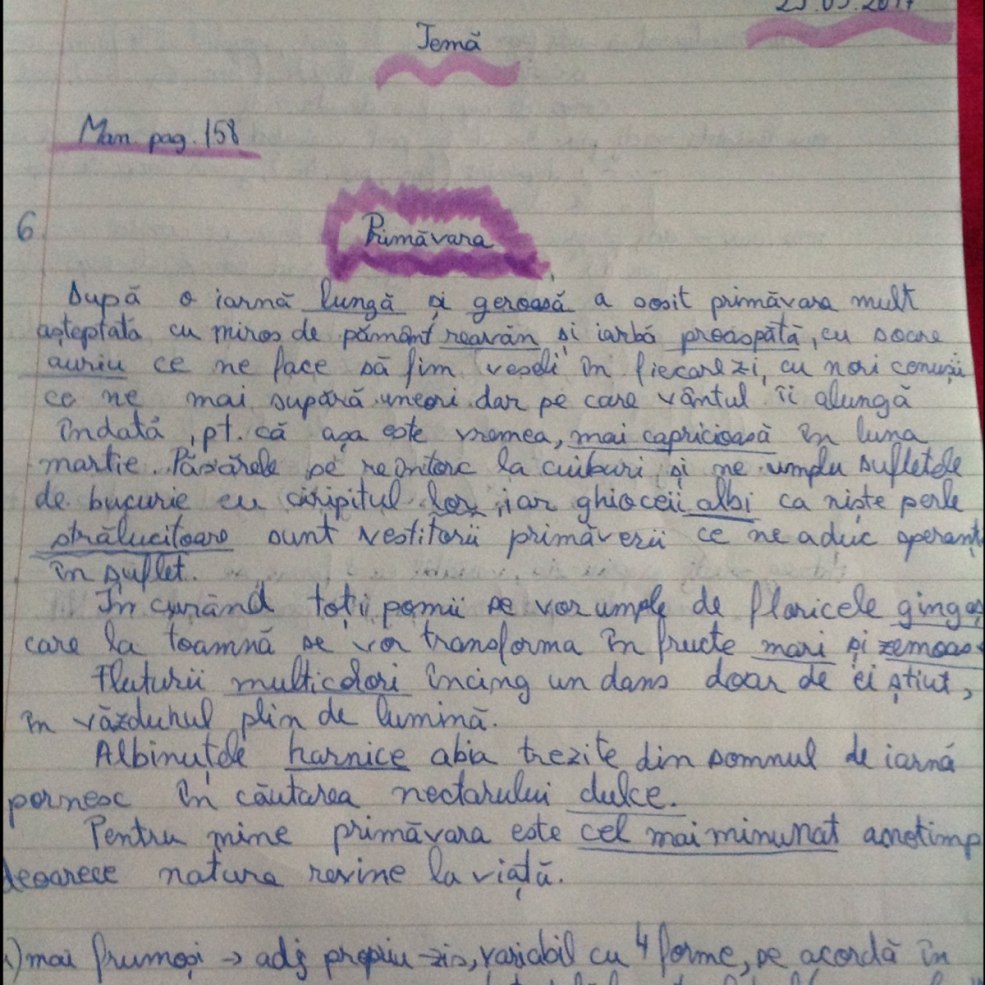 23.03.2017
Temă
Man. pag. 158
6
Primăvara
După o iarnă lungă și geroasă a sosit primăvara mult
așteptată cu miros de pământ reavăn și iarbă proaspătă, cu soare
auriu ce ne face să fim veseli în fiecare zi, cu nori cenușii
ce ne mai supără uneori dar pe care vântul îi alungă
îndată, pt. că așa este vremea, mai capricioasă în luna
martie. Păsărele se reîntorc la cuiburi și ne umplu sufletele
de bucurie cu ciripitul lor, iar ghioceii albi ca niște perle
strălucitoare sunt vestitorii primăverii ce ne aduc speranț
în suflet.
În curând toți pomii se vor umple de floricele gingaș
care la toamnă se vor transforma în fructe mari și zemoas
Fluturii multicolori încing un dans doar de ei știut,
în văzduhul plin de lumină.
Albinuțele harnice abia trezite din somnul de iarnă
pornesc în căutarea nectarului dulce.
Pentru mine primăvara este cel mai minunat anotimp
deoarece natura revine la viață.
mai frumoși → adj propriu-zis, variabil cu 4 forme, se acordă în